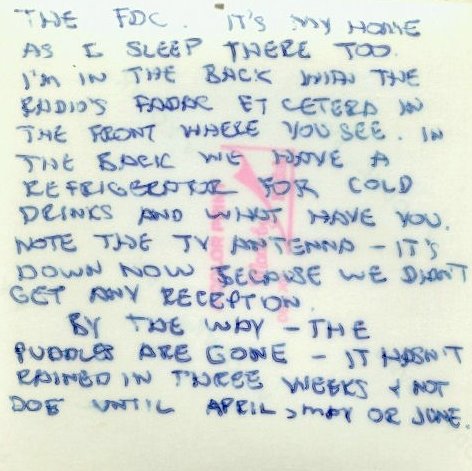 THE FDC. IT'S MY HOME
AS I SLEEP THERE TOO.
I'M IN THE BACK WITH THE
RADIO'S FADAC ET CETERA IN
THE FRONT WHERE YOU SEE. IN
THE BACK WE HAVE A
REFRIGERATOR FOR COLD
DRINKS AND WHAT HAVE YOU.
NOTE THE TV ANTENNA - IT'S
DOWN NOW BECAUSE WE DIDN'T
GET ANY RECEPTION.
BY THE WAY - THE
PUDDLES ARE GONE - IT HASN'T
RAINED IN THREE WEEKS & NOT
DUE UNTIL APRIL, MAY OR JUNE.